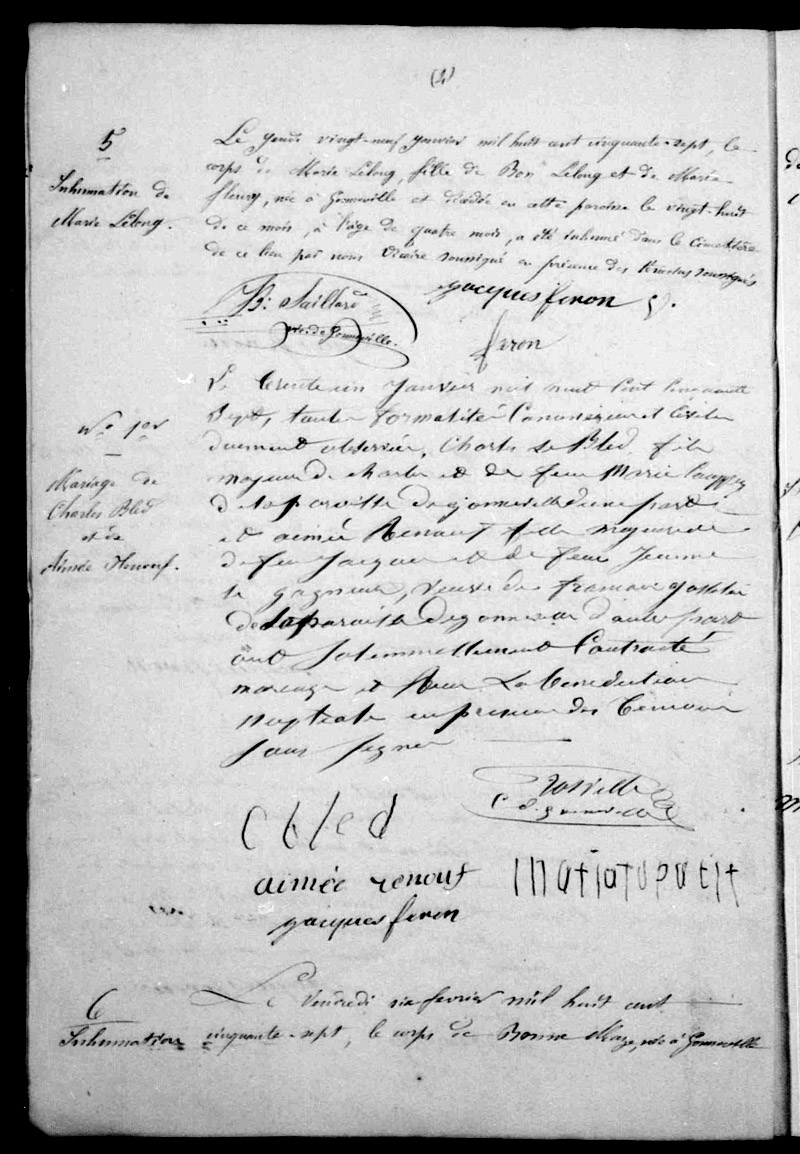 (4)
5
Inhumation de
Marie Lelong.
Le jeudi vingt-neuf janvier mil huit cent cinquante-sept, le
corps de Marie Lelong fille de Bon Lelong et de Marie
fleury, née à Gonneville et décédée en cette paroisse le vingt-huit
de ce mois, à l'âge de quatre mois, a été inhumé dans le cimetière
de ce lieu par nous Vicaire soussigné en présence des témoins soussignés
B. Saillard
vic. de Gonneville.
jacques feron
feron
No 1er
Mariage de
Charles Bled
et de
Aimée Renouf.
Le trente un janvier mil huit cent cinquante
Sept, toutes formalités Canoniques et Civiles
duement observées, Charles Le Bled, fils
majeur de charles et de feue Marie
de la paroisse de gonneville d'une part
et aimée Renouf fille majeure de
de feu jacques et de feue Jeanne
le gagneur, veuve de francois
de la paroisse de gonneville d'autre part
ont solemnellement Contracté
mariage et Recu La benediction
nuptiale en presence des temoins
sous signés
c d gonneville
c bled
aimée renouf
jacques feron
6
Inhumation
Le Vendredi six fevrier mil huit cent
cinquante-sept, le corps de Bonne Maze, née à Gonneville